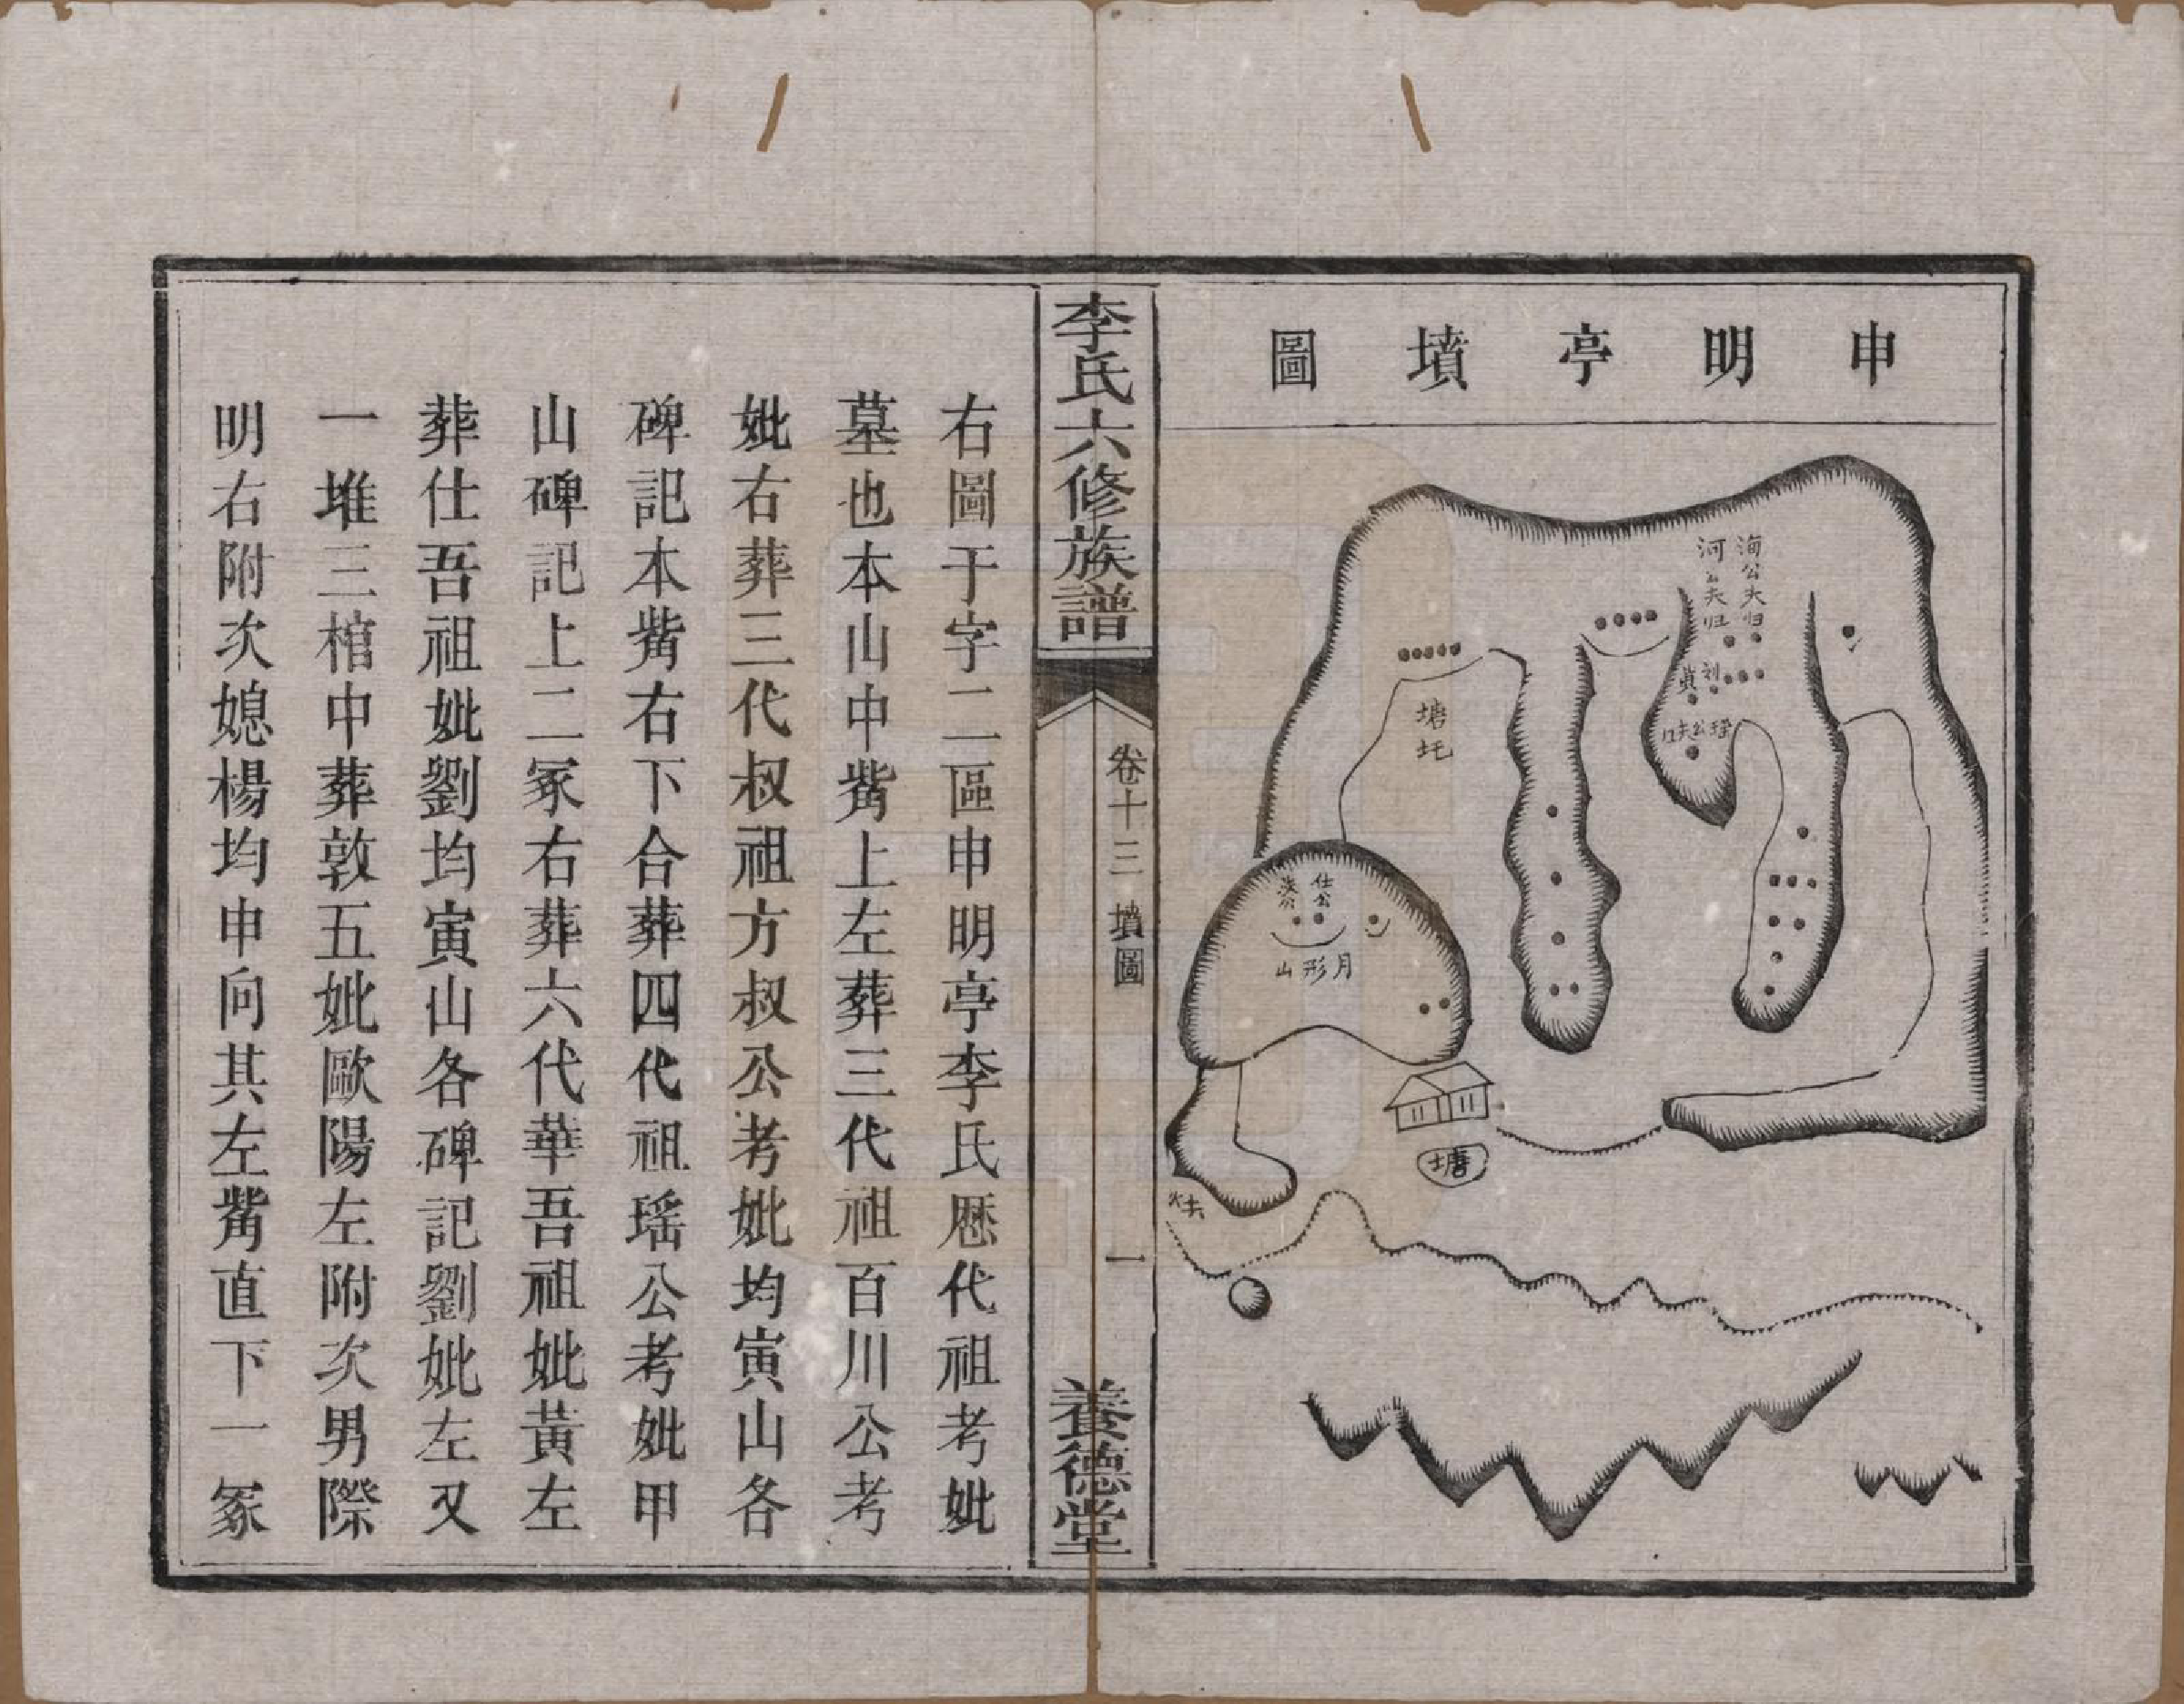 申明亭墳圖
海公夫归
河公夫归
利
貞
塘坵
仕公
月形山
塘
李氏六修族譜
卷十三 墳圖
一
養德堂
右圖于字二區申明亭李氏歷代祖考妣
墓也本山中觜上左葬三代祖百川公考
妣右葬三代叔祖方叔公考妣均寅山各
碑記本觜右下合葬四代祖瑤公考妣甲
山碑記上二冢右葬六代華吾祖妣黃左
葬仕吾祖妣劉均寅山各碑記劉妣左又
一堆三棺中葬敦五妣歐陽左附次男際
明右附次媳楊均申向其左觜直下一冢